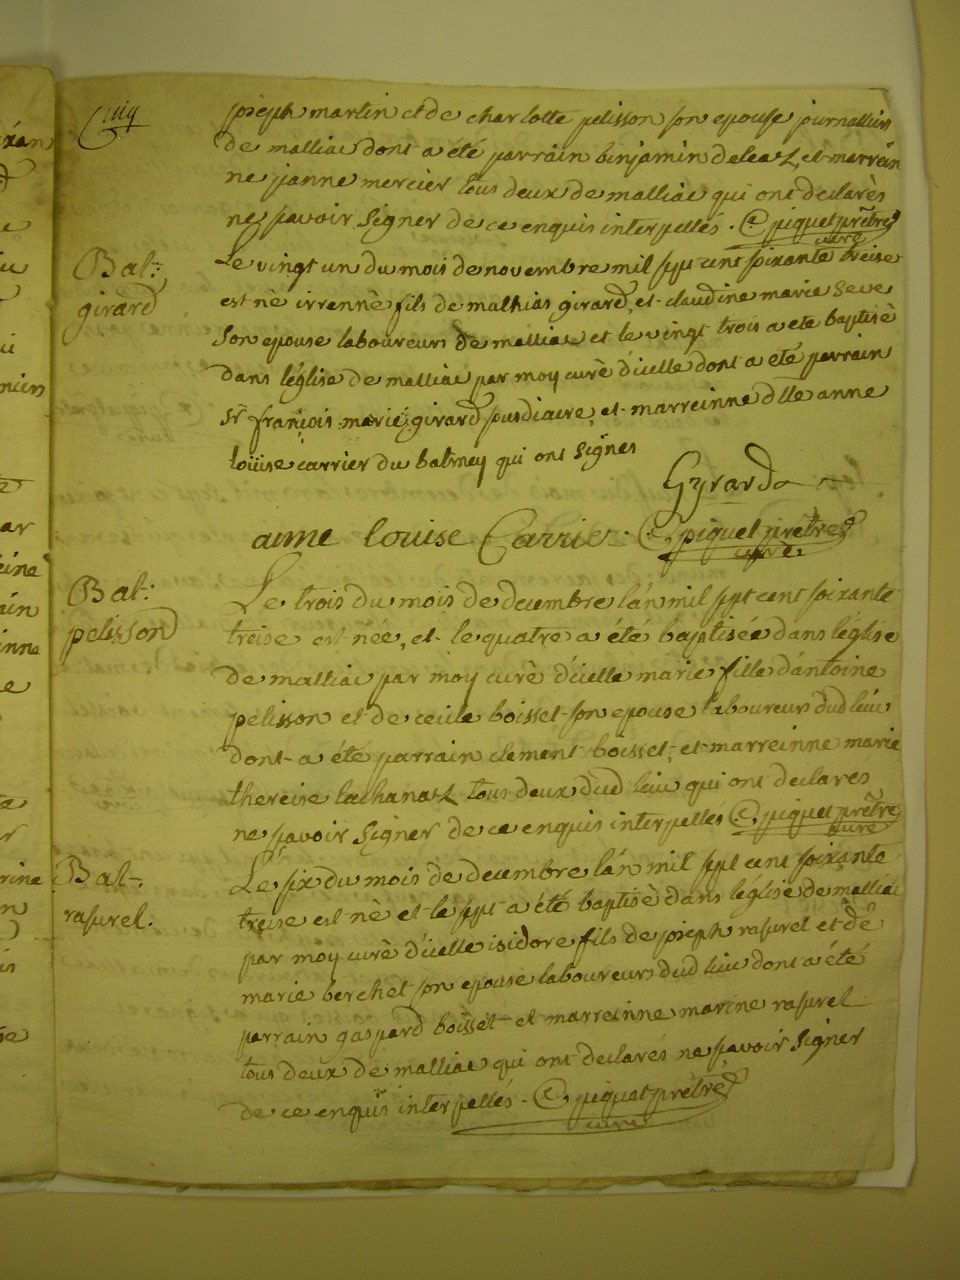 joseph martin et de charlotte pelisson son epouse journalliers
de malliac dont a été parrain binjamin deleaz, et marrein
ne janne mercier tous deux de malliac qui ont declarès
ne sçavoir signer de ce enquis interpellés. C. piquet prêtre
curé
Bat:
girard
Le vingt un du mois de novembre mil sept cent soixante treise
est nè irrennè fils de mathias girard, et claudine marie seve
son epouse laboureurs de malliac et le vingt trois a eté baptisè
dans léglise de malliac par moy curè d'icelle dont a été parrain
Sr. françois marie girard sudiacre, et marreinne dlle anne
loüise carrier du batmey qui ont signés
Gyrard
anne louise Carrier C. piquet prêtre
curé
Bat:
pelisson
Le trois du mois de decembre lán mil sept cent soixante
treise est née, et le quatre a été baptisée dans léglise
de malliac par moy curè d'icelle marie fille dántoine
pelisson et de cecile boisset son epouse laboureurs dud lieu
dont a été parrain clement boisset, et marreinne marie
thereise lachanaz tous deux dud lieu qui ont declarés
ne sçavoir signer de ce enquis interpellés C. piquet prêtre
curé
Bat:
rasurel.
Le six du mois de decembre lán mil sept cent soixante
treise est nè et le sept a été baptisè dans léglise de malliac
par moy curè d'icelle isidore fils de joseph rasurel et de
marie berchet son epouse laboureurs dud lieu dont a été
parrain gaspard boisset et marreinne marine rasurel
tous deux de malliac qui ont declarés ne sçavoir signer
de ce enquis interpellés. C. piquet prêtre
curé